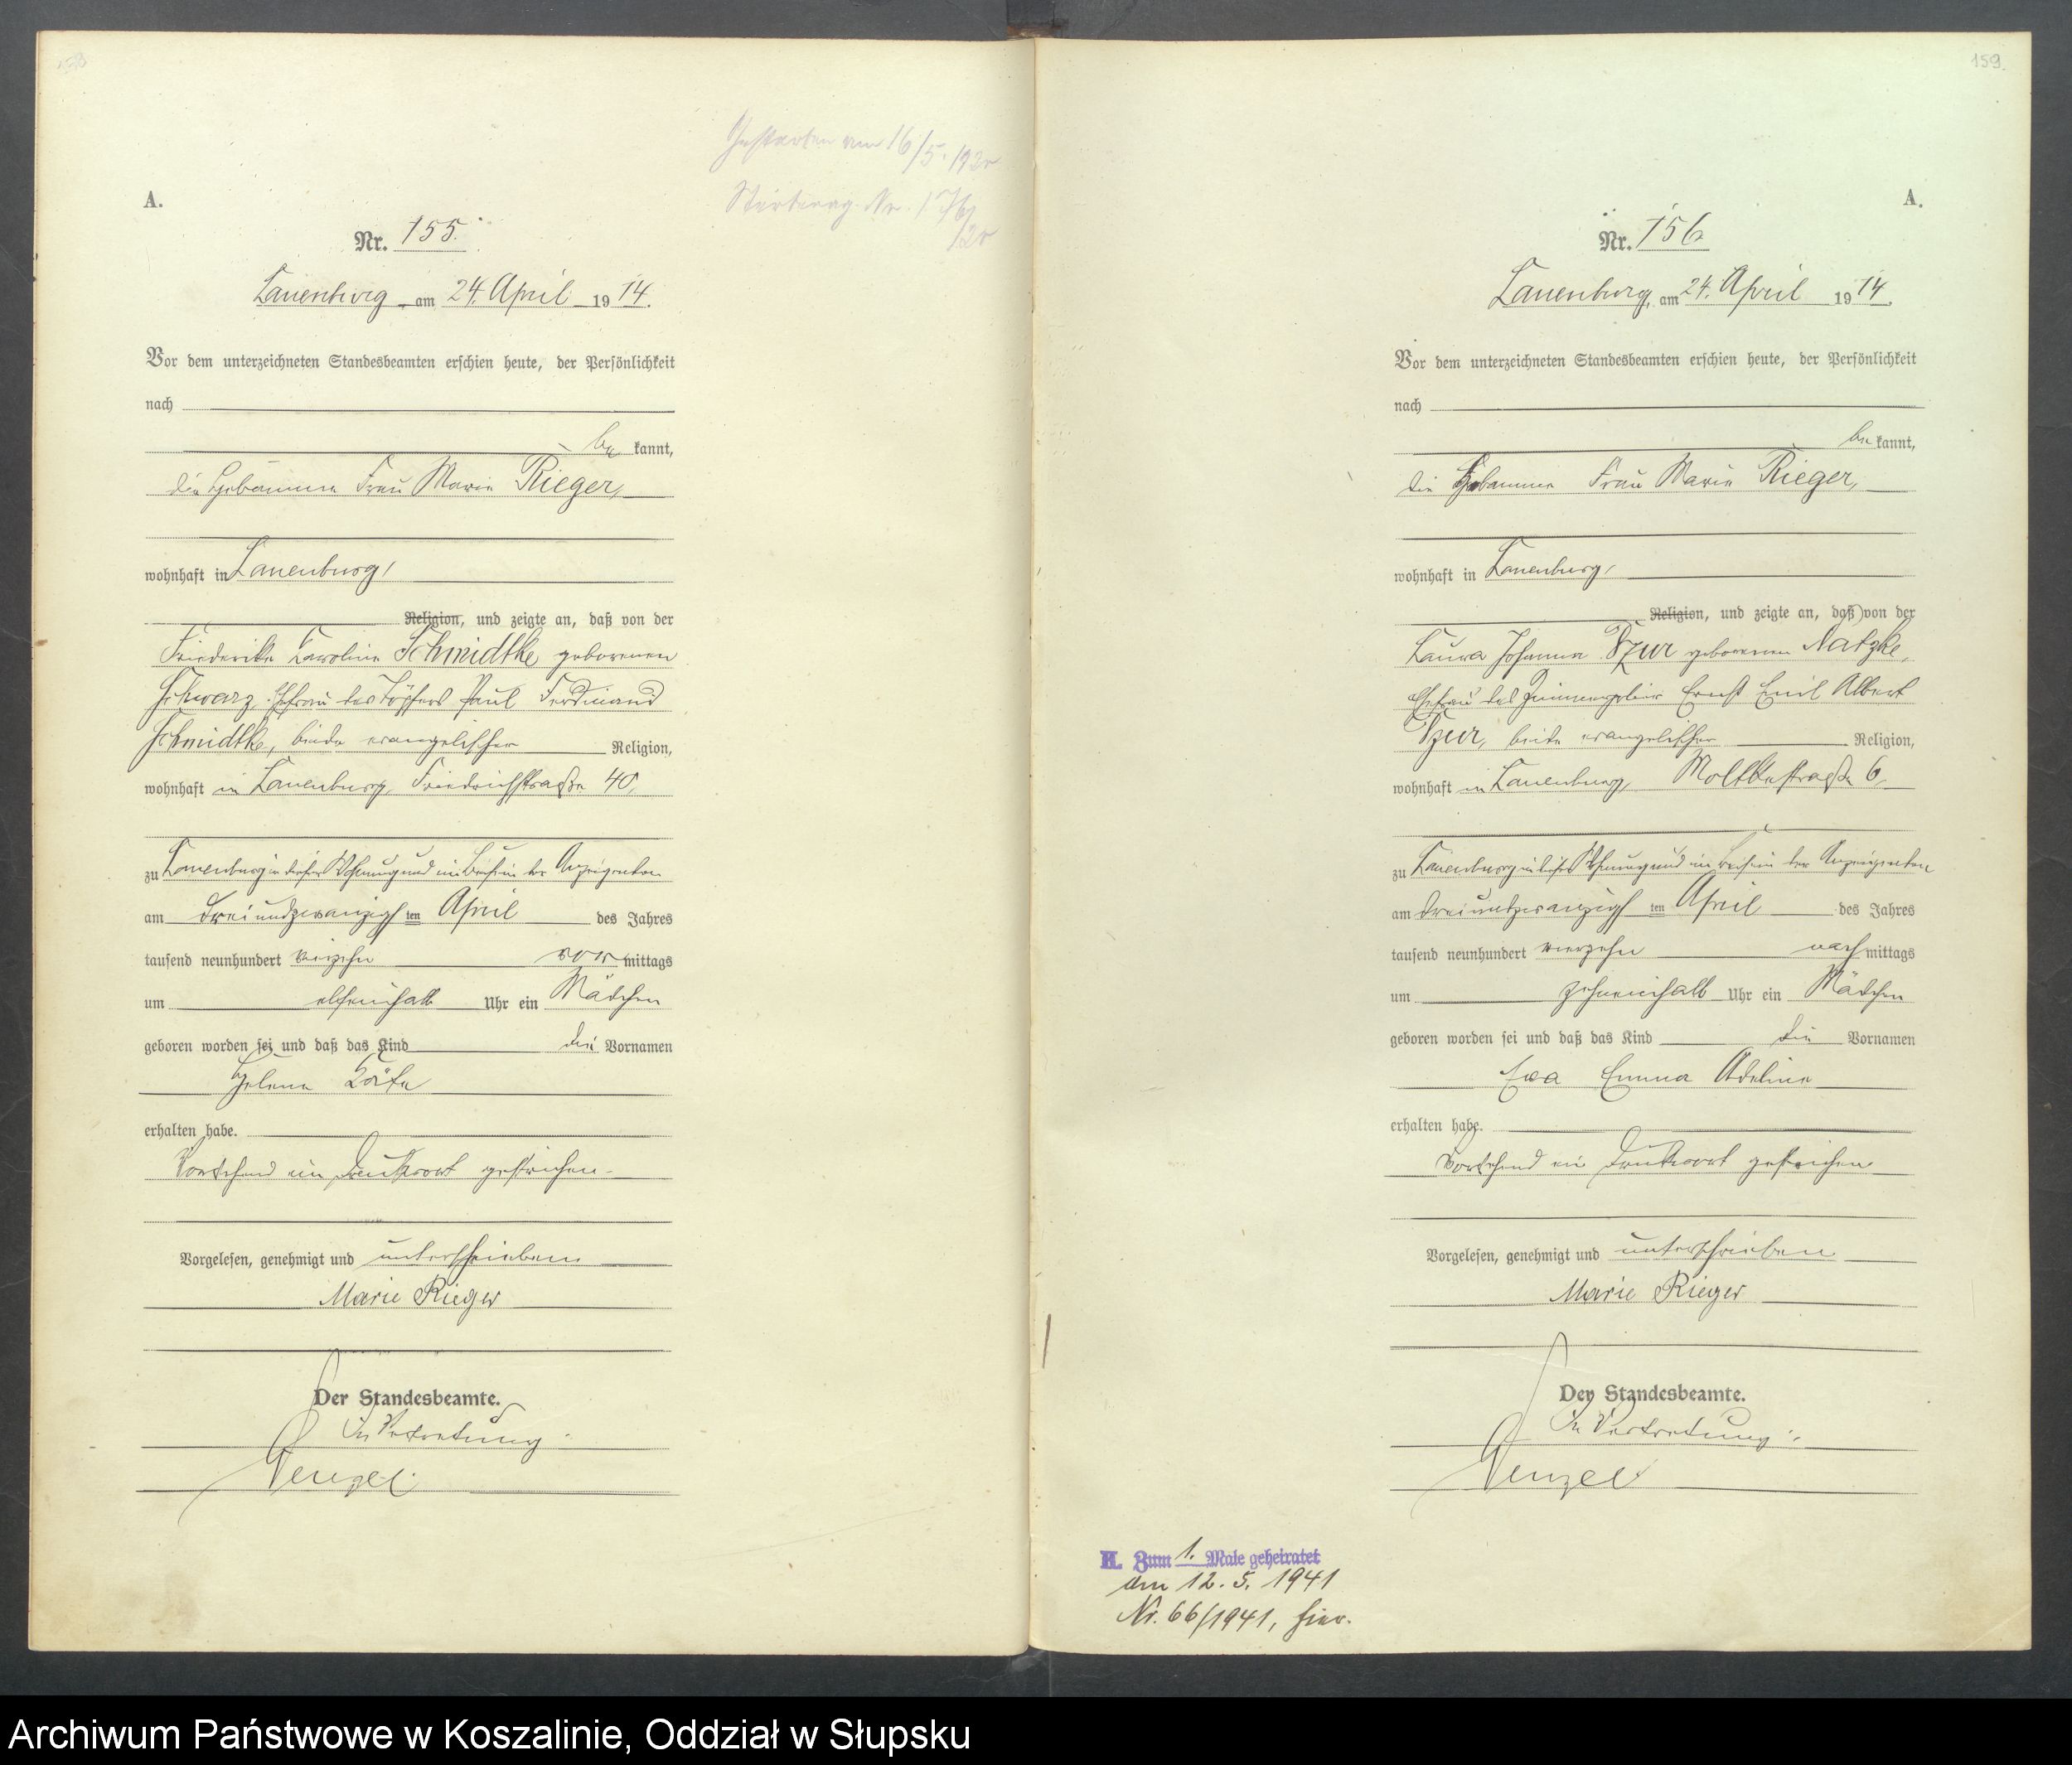 A.
Gestorben am 16/5. 1920
Sterbereg. Nr. 176/20
Nr. 155.
Lauenburg am 24. April 1914.
Vor dem unterzeichneten Standesbeamten erschien heute, der Persönlichkeit
nach
bekannt,
die Hebamme Frau Marie Rieger,
wohnhaft in Lauenburg,
Religion, und zeigte an, daß von der
Friederike Karoline Schmidtke geborenen
Schwarz, Ehefrau des Töpfers Paul Ferdinand
Schmidtke, beide evangelischer Religion,
wohnhaft in Lauenburg, Friedrichstraße 40,
zu Lauenburg in dieser Wohnung und im Beisein der Anzeigenden
am dreiundzwanzigsten April des Jahres
tausend neunhundert vierzehn vormittags
um elfeinhalb Uhr ein Mädchen
geboren worden sei und daß das Kind die Vornamen
Helene Käte
erhalten habe.
Vorstehend ein Druckwort gestrichen.
Vorgelesen, genehmigt und unterschrieben
Marie Rieger
Der Standesbeamte.
In Vertretung:
Wenzel
159
A.
Nr. 156
Lauenburg, am 24. April 1914.
Vor dem unterzeichneten Standesbeamten erschien heute, der Persönlichkeit
nach
bekannt,
die Hebamme Frau Marie Rieger,
wohnhaft in Lauenburg,
Religion, und zeigte an, daß von der
Laura Johanna geborenen Natzke,
Ehefrau des Ernst Emil Albert
beide evangelischer Religion,
wohnhaft in Lauenburg, Moltkestraße 6,
zu Lauenburg in dieser Wohnung und im Beisein der Anzeigenden
am dreiundzwanzigsten April des Jahres
tausend neunhundert vierzehn nachmittags
um zehneinhalb Uhr ein Mädchen
geboren worden sei und daß das Kind die Vornamen
Eva Emma Adeline
erhalten habe.
Vorstehend ein Druckwort gestrichen
Vorgelesen, genehmigt und unterschrieben
Marie Rieger
Der Standesbeamte.
In Vertretung:
Wenzel
H. Zum 1. Male geheiratet
am 12. 5. 1941
Nr. 66/1941, hier.
Archiwum Państwowe w Koszalinie, Oddział w Słupsku